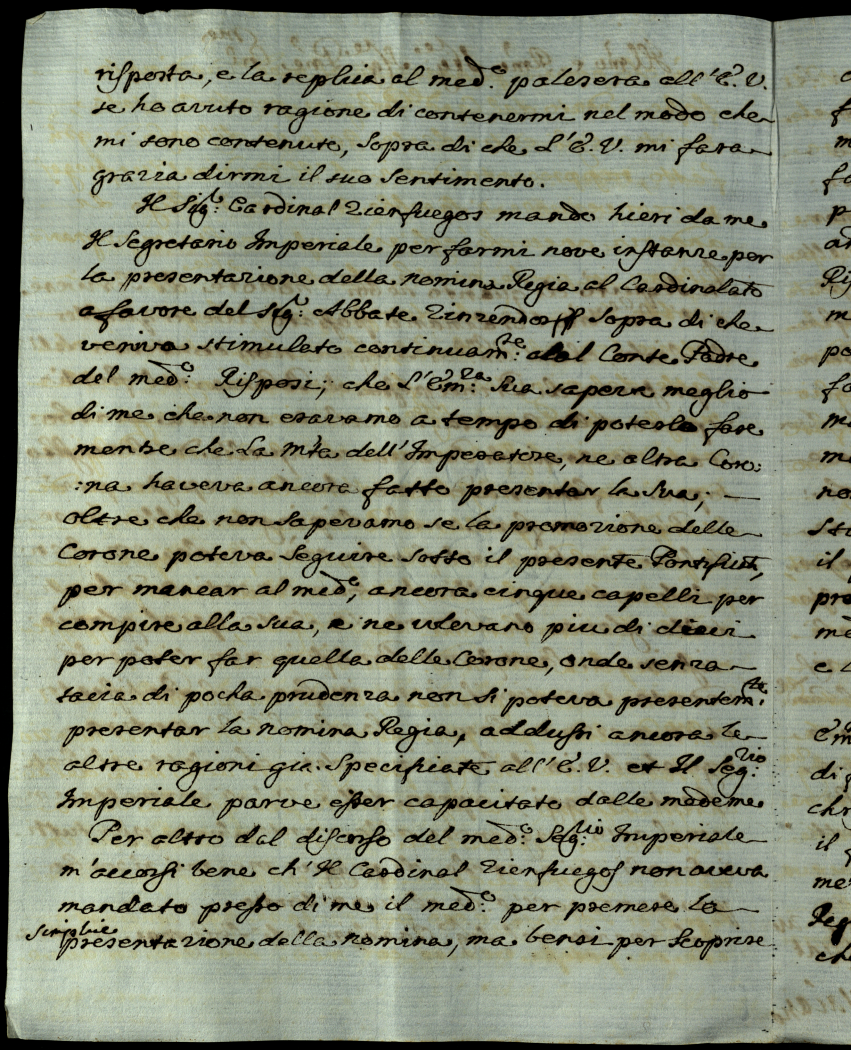 risposta, e la replica al med.º palesera all'E. V.
se ho avuto ragione di contenermi nel modo che
mi sono contenuto, sopra di che L'E. V. mi fara
grazia dirmi il suo sentimento.
Il Sig.r Cardinal Zienfuegos mando hieri da me
Il Segretario Imperiale per farmi nove instanze per
la presentazione della nomina Regia al Cardinalato
a favore del Sig.r Abbate Zinzendorff sopra di che
veniva stimulato continuam.te dal Conte Padre
del med.º Risposi; che l'Em.za Sua sapeva meglio
di me che non eravamo a tempo di poterlo fare
mentre che La Mtà dell'Imperatore, ne altra Coro:
:na haveva ancora fatto presentar la sua;
oltre che non sapevamo se la promozione delle
Corone poteva seguire sotto il presente Pontificat,
per mancar al med.º, ancora cinque capelli per
compire alla sua, e ne volevano piu di dieci
per poter far quella delle Corone, onde senza
tacia di pocha prudenza non si poteva presentem.te
presentar la nomina Regia, addussi ancora le
altre ragioni gia specificate all'E. V. et Il Seg.rio
Imperiale parve esser capacitato dalle medeme
Per altro dal discorso del med.º Seg.rio Imperiale
m'accorsi bene ch'Il Cardinal Zienfuegos non aveva
mandato presso di me il med.º per premere la
presentazione della nomina, ma bensi per scoprire